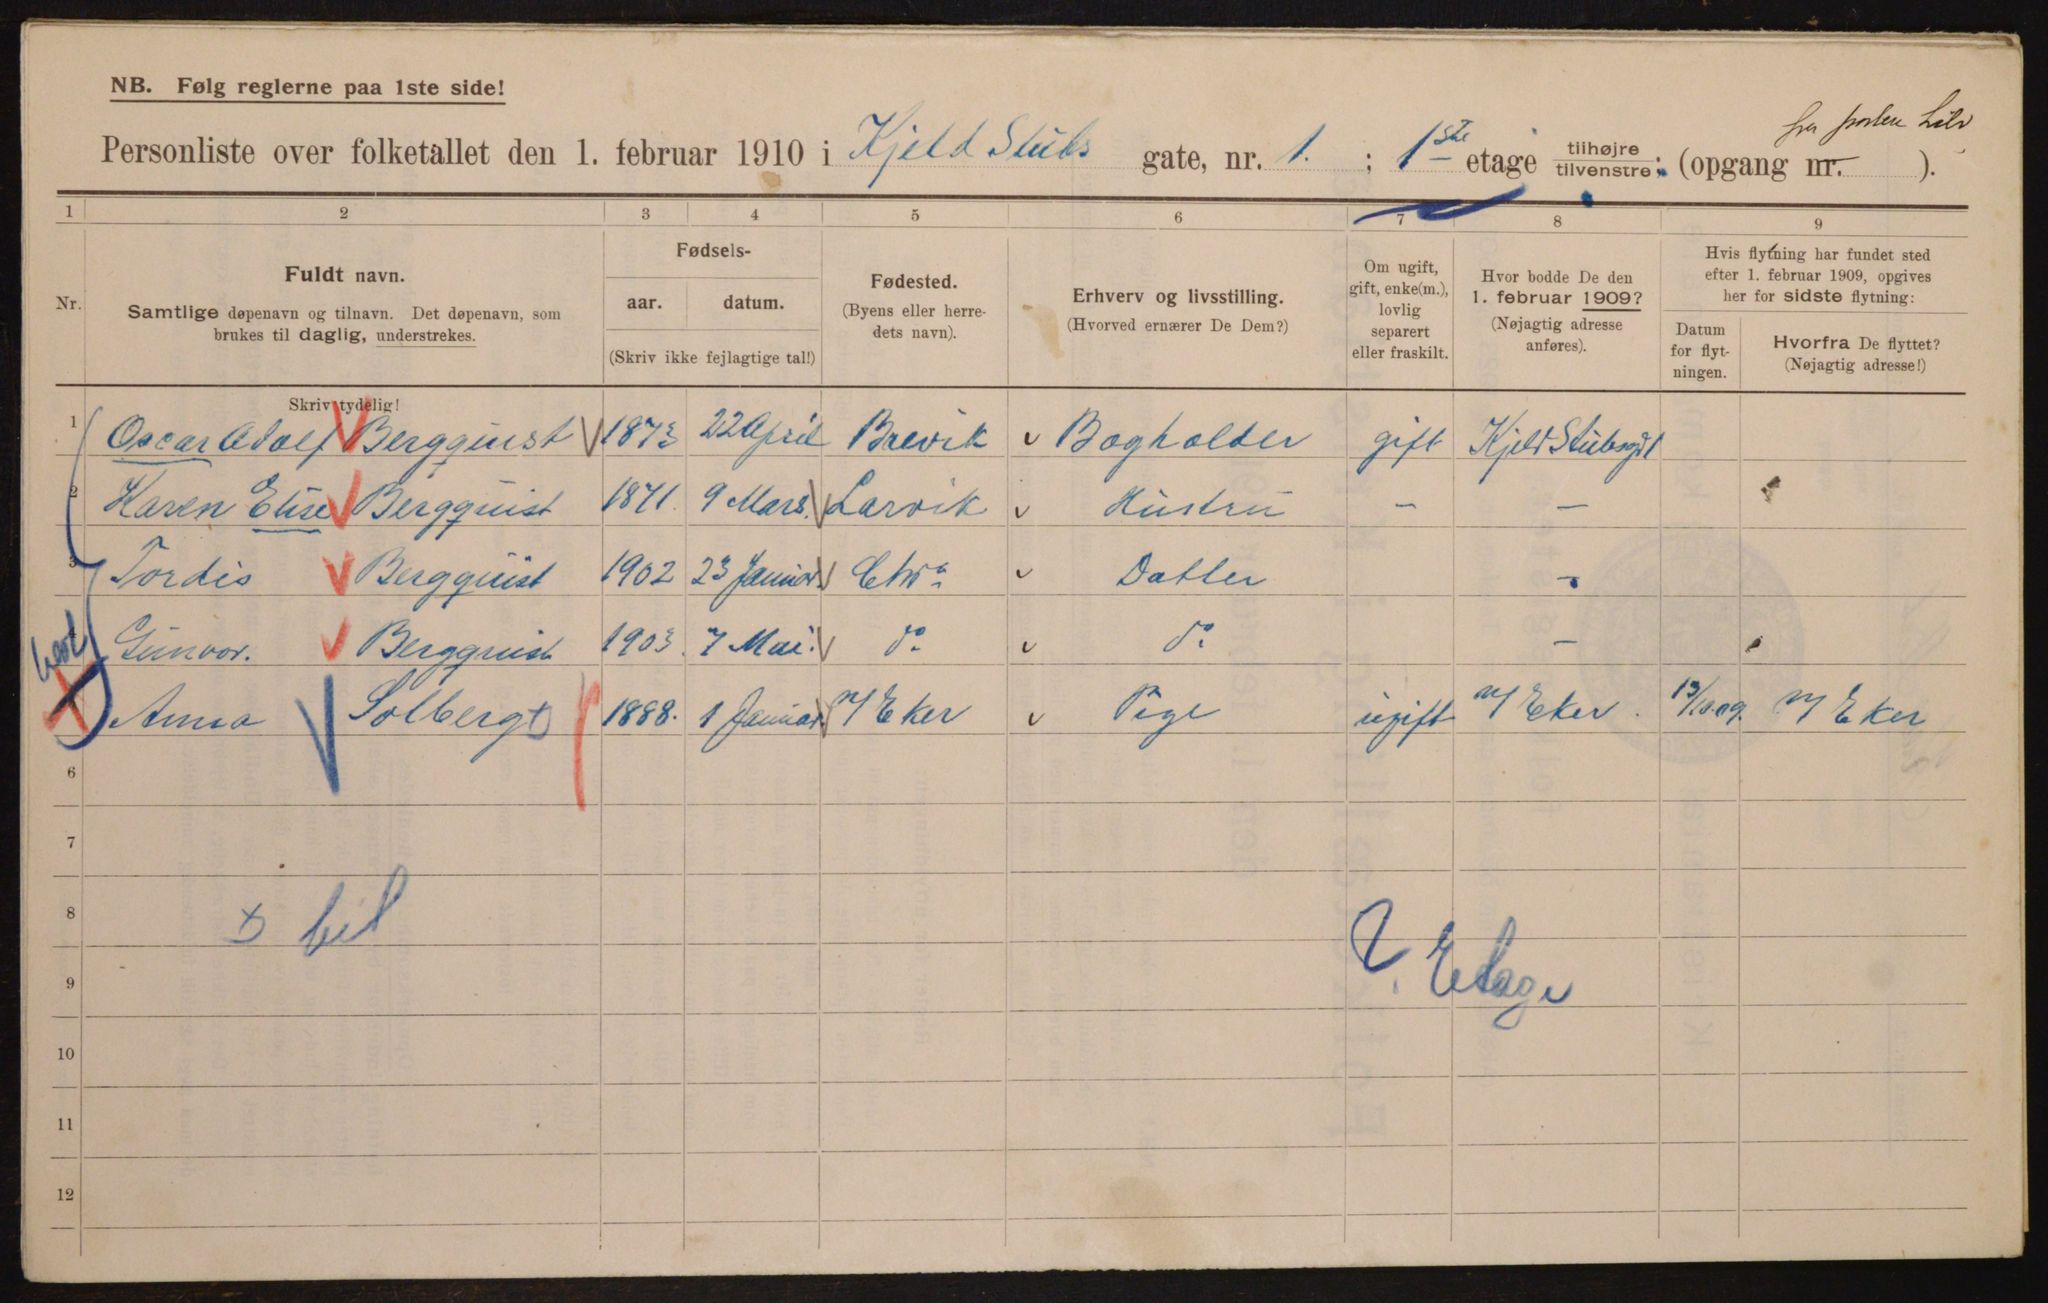 NB. Følg reglerne paa 1ste side!
fra porten
Personliste over folketallet den 1. februar 1910 i Kjeld Stubs gate, nr. 1. ; 1ste etage tilhøjre tilvenstre; (opgang nr. ).
1 2 3 4 5 6 7 8 9
Nr.
Fuldt navn.
Samtlige døpenavn og tilnavn. Det døpenavn, som
brukes til daglig, understrekes.
Fødsels-
aar. datum.
(Skriv ikke fejlagtige tal!)
Fødested.
(Byens eller herre-
dets navn).
Erhverv og livsstilling.
(Hvorved ernærer De Dem?)
Om ugift,
gift, enke(m.),
lovlig
separert
eller fraskilt.
Hvor bodde De den
1. februar 1909?
(Nøjagtig adresse
anføres).
Hvis flytning har fundet sted
efter 1. februar 1909, opgives
her for sidste flytning:
Datum
for flyt-
ningen.
Hvorfra De flyttet?
(Nøjagtig adresse!)
Skriv tydelig!
1 Oscar Adolf Bergquist 1873 22 April Brevik Bogholder gift Kjeld Stubsgt 1
2 Karen Elise Bergquist 1871. 9 Mars. Larvik Hustru – –
3 Tordis Bergquist 1902 23 Januar Chra Datter –
4 Gunvor. Bergquist 1903. 7 Mai. do do –
Anna Solberg 1888. 1 Januar N/ Eker Pige ugift N/ Eker. 13/10.09. N/ Eker
6
7
8
x bet
2. Etage
9
10
11
12